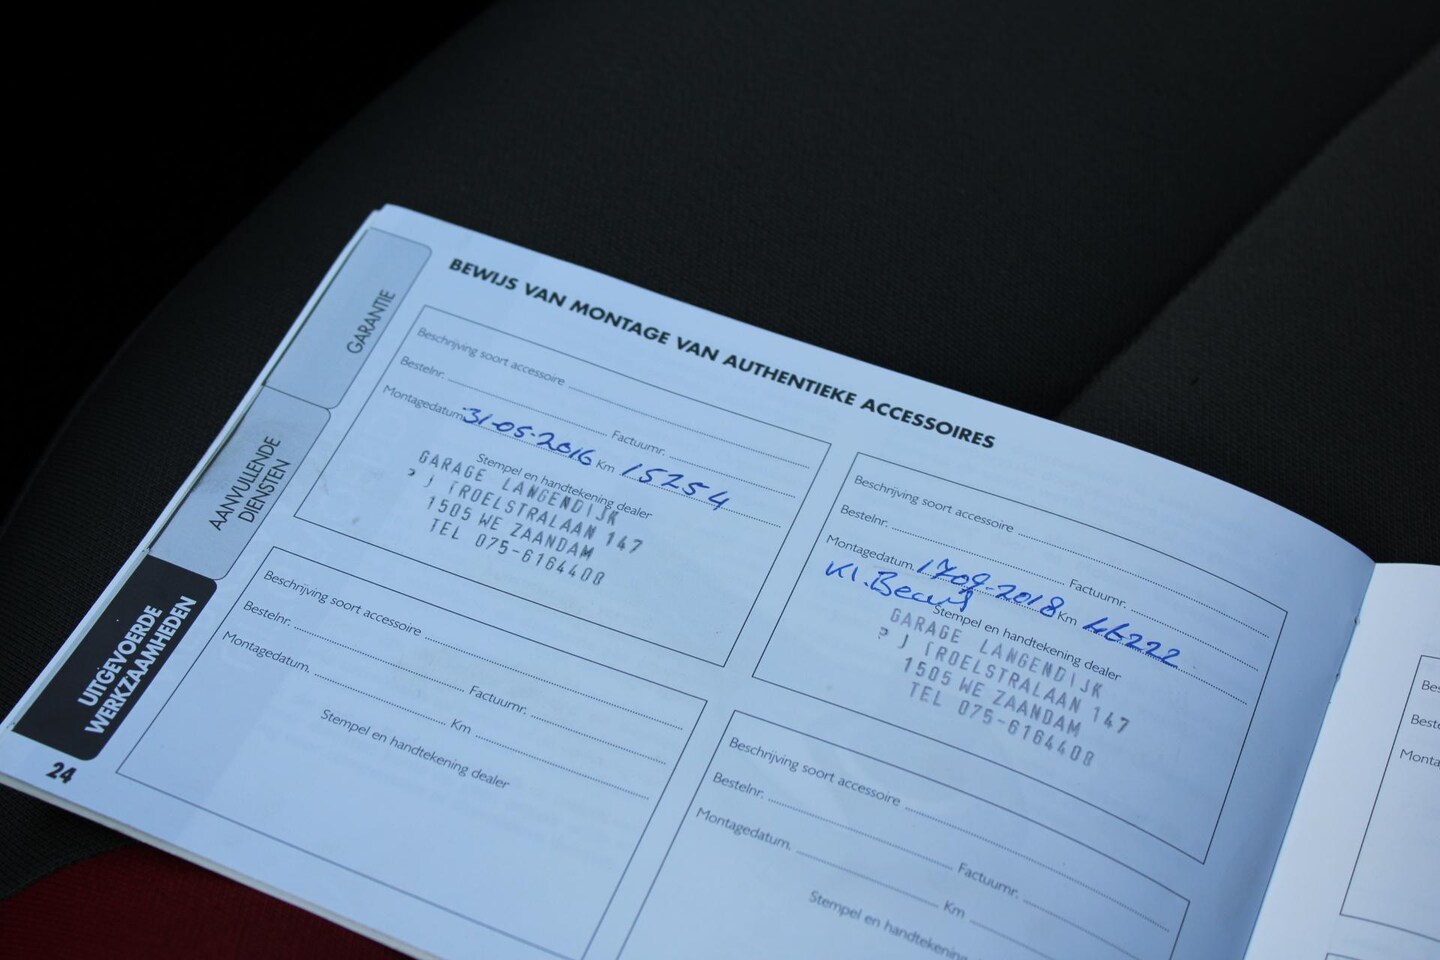 GARANTIE
AANVULLENDE
DIENSTEN
UITGEVOERDE
WERKZAAMHEDEN
24
BEWIJS VAN MONTAGE VAN AUTHENTIEKE ACCESSOIRES
Beschrijving soort accessoire
Bestelnr. Factuurnr.
Montagedatum 31-05-2016 Km 15254
Stempel en handtekening dealer
GARAGE LANGENDIJK
P J TROELSTRALAAN 147
1505 WE ZAANDAM
TEL 075-6164408
Beschrijving soort accessoire
Bestelnr. Factuurnr.
Montagedatum. 17-09-2018 Km 46222
Kl. Beurt
Stempel en handtekening dealer
GARAGE LANGENDIJK
P J TROELSTRALAAN 147
1505 WE ZAANDAM
TEL 075-6164408
Beschrijving soort accessoire
Bestelnr. Factuurnr.
Montagedatum. Km
Stempel en handtekening dealer
Beschrijving soort accessoire
Bestelnr. Factuurnr.
Montagedatum. Km
Stempel en handtekening
Bes
Beste
Monta